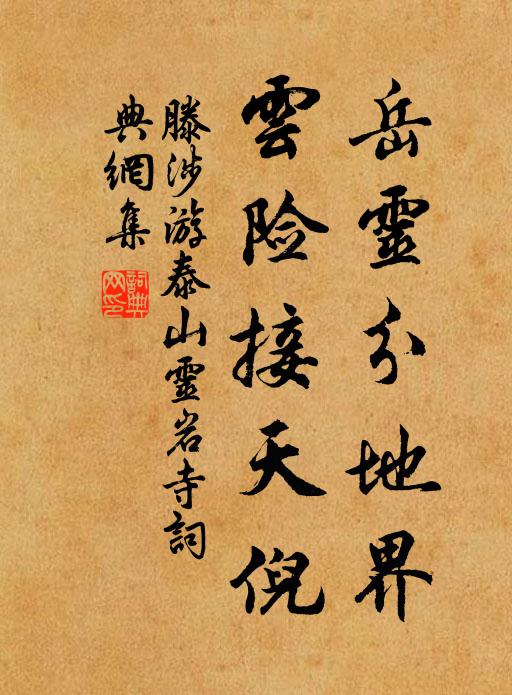 岳靈分地界
雲險接天倪
滕涉游泰山靈岩寺詞
典網集
詞典网印